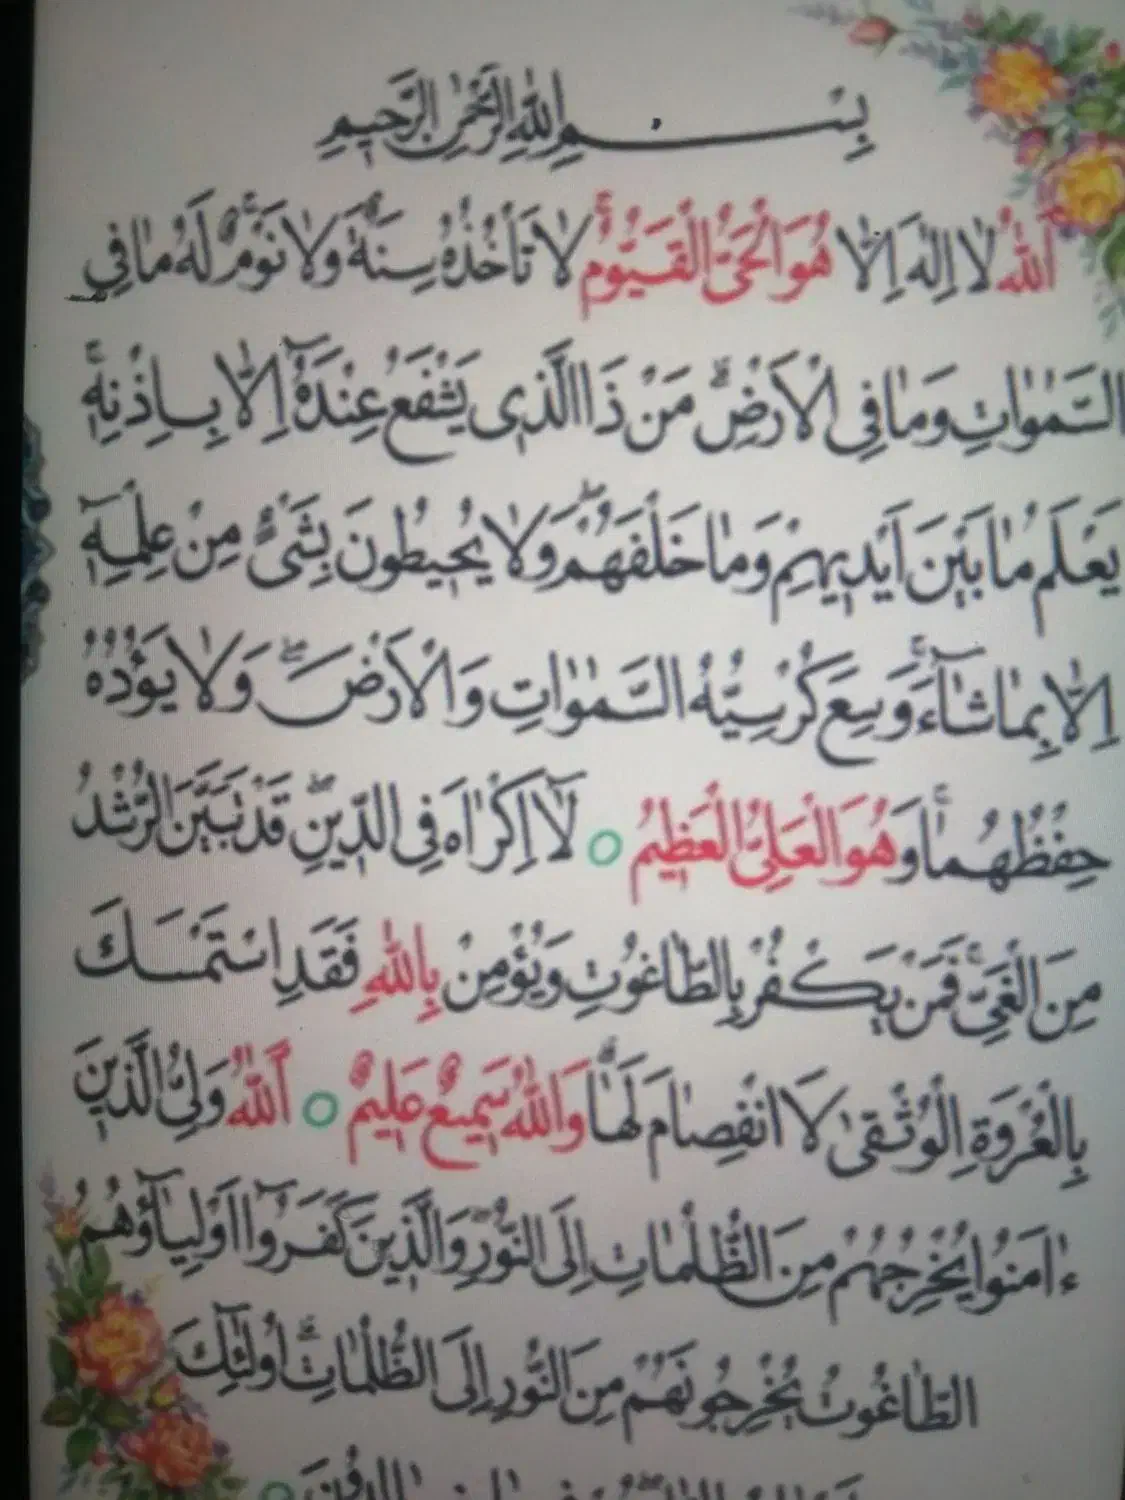 بِسْمِ اللهِ الرَّحْمٰنِ الرَّحِيمِ
اَللهُ لَا اِلٰهَ اِلَّا هُوَ الْحَيُّ الْقَيُّومُ لَا تَأْخُذُهُ سِنَةٌ وَلَا نَوْمٌ لَهُ مَا فِي
السَّمٰوَاتِ وَمَا فِي الْاَرْضِ مَنْ ذَا الَّذِي يَشْفَعُ عِنْدَهُ اِلَّا بِاِذْنِهِ
يَعْلَمُ مَا بَيْنَ اَيْدِيهِمْ وَمَا خَلْفَهُمْ وَلَا يُحِيطُونَ بِشَيْءٍ مِنْ عِلْمِهِ
اِلَّا بِمَا شَاءَ وَسِعَ كُرْسِيُّهُ السَّمٰوَاتِ وَالْاَرْضَ وَلَا يَؤُدُهُ
حِفْظُهُمَا وَهُوَ الْعَلِيُّ الْعَظِيمُ ○ لَا اِكْرَاهَ فِي الدِّينِ قَدْ تَبَيَّنَ الرُّشْدُ
مِنَ الْغَيِّ فَمَنْ يَكْفُرْ بِالطَّاغُوتِ وَيُؤْمِنْ بِاللهِ فَقَدِ اسْتَمْسَكَ
بِالْعُرْوَةِ الْوُثْقٰى لَا انْفِصَامَ لَهَا وَاللهُ سَمِيعٌ عَلِيمٌ ○ اَللهُ وَلِيُّ الَّذِينَ
ءَامَنُوا يُخْرِجُهُمْ مِنَ الظُّلُمَاتِ اِلَى النُّورِ وَالَّذِينَ كَفَرُوا اَوْلِيَاؤُهُمُ
الطَّاغُوتُ يُخْرِجُونَهُمْ مِنَ النُّورِ اِلَى الظُّلُمَاتِ اُولٰئِكَ